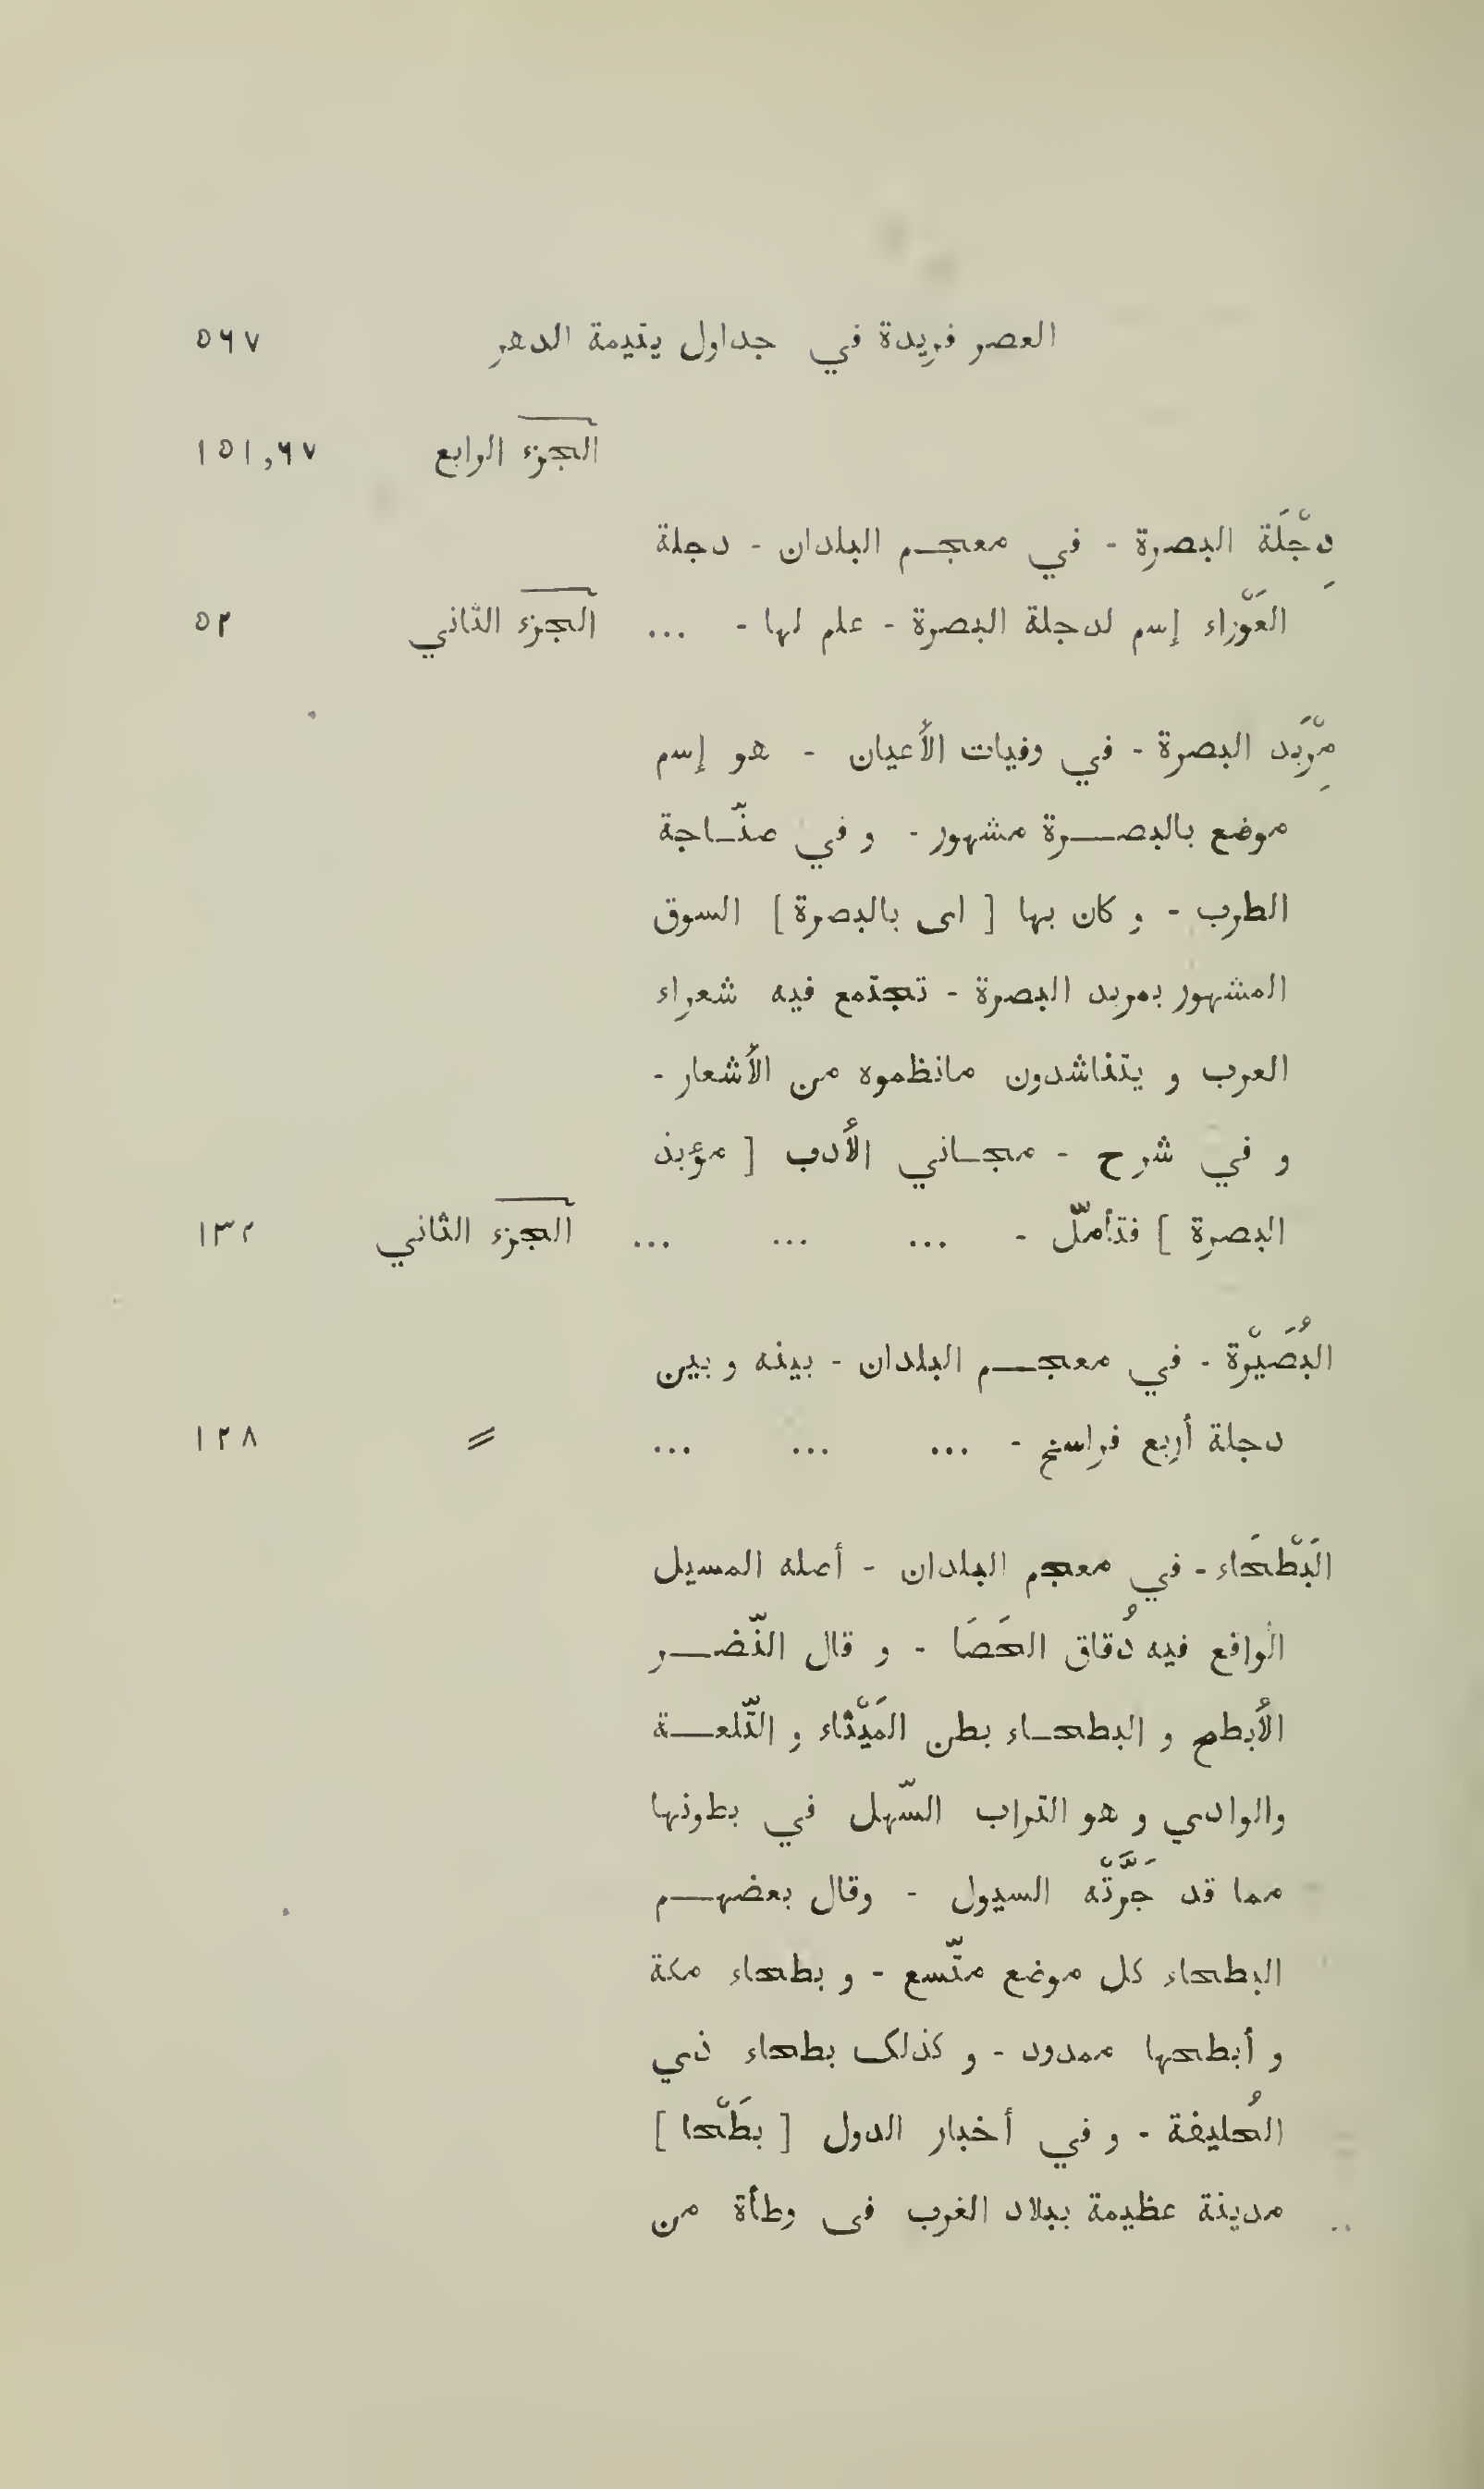 العصر فريدة في جداول يتيمة الدهر ٥٦٧
الجزء الرابع ١٥١,٦٧
دِجْلَة البصرة - في معجم البلدان - دجلة
العَوْراء إسم لدجلة البصرة - علم لها - ... الجزء الثاني ٥٢
مِرْبَد البصرة - في وفيات الأعيان - هو إسم
موضع بالبصرة مشهور - و في صنّاجة
الطرب - و كان بها [ اى بالبصرة ] السوق
المشهور بمربد البصرة - تجتمع فيه شعراء
العرب و يتناشدون مانظموه من الأشعار -
و في شرح - مجاني الأدب [ مؤبد
البصرة ] فتأمّل - ... ... ... الجزء الثاني ١٣٢
البُصَيْرة - في معجم البلدان - بينه و بين
دجلة أربع فراسخ - ... ... ... 〃 ١٢٨
البَطْحَاء - في معجم البلدان - أصله المسيل
الواقع فيه دُقاق الحَصَا - و قال النّضر
الأبطح و البطحاء بطن المَيْثاء و التّلعة
والوادي و هو التراب السّهل في بطونها
مما قد جَرَّتْه السيول - وقال بعضهم
البطحاء كل موضع متّسع - و بطحاء مكة
و أبطحها ممدود - و كذلك بطحاء ذي
الحُليفة - و في أخبار الدول [ بطَحْا ]
مدينة عظيمة ببلاد الغرب فى وطأة من